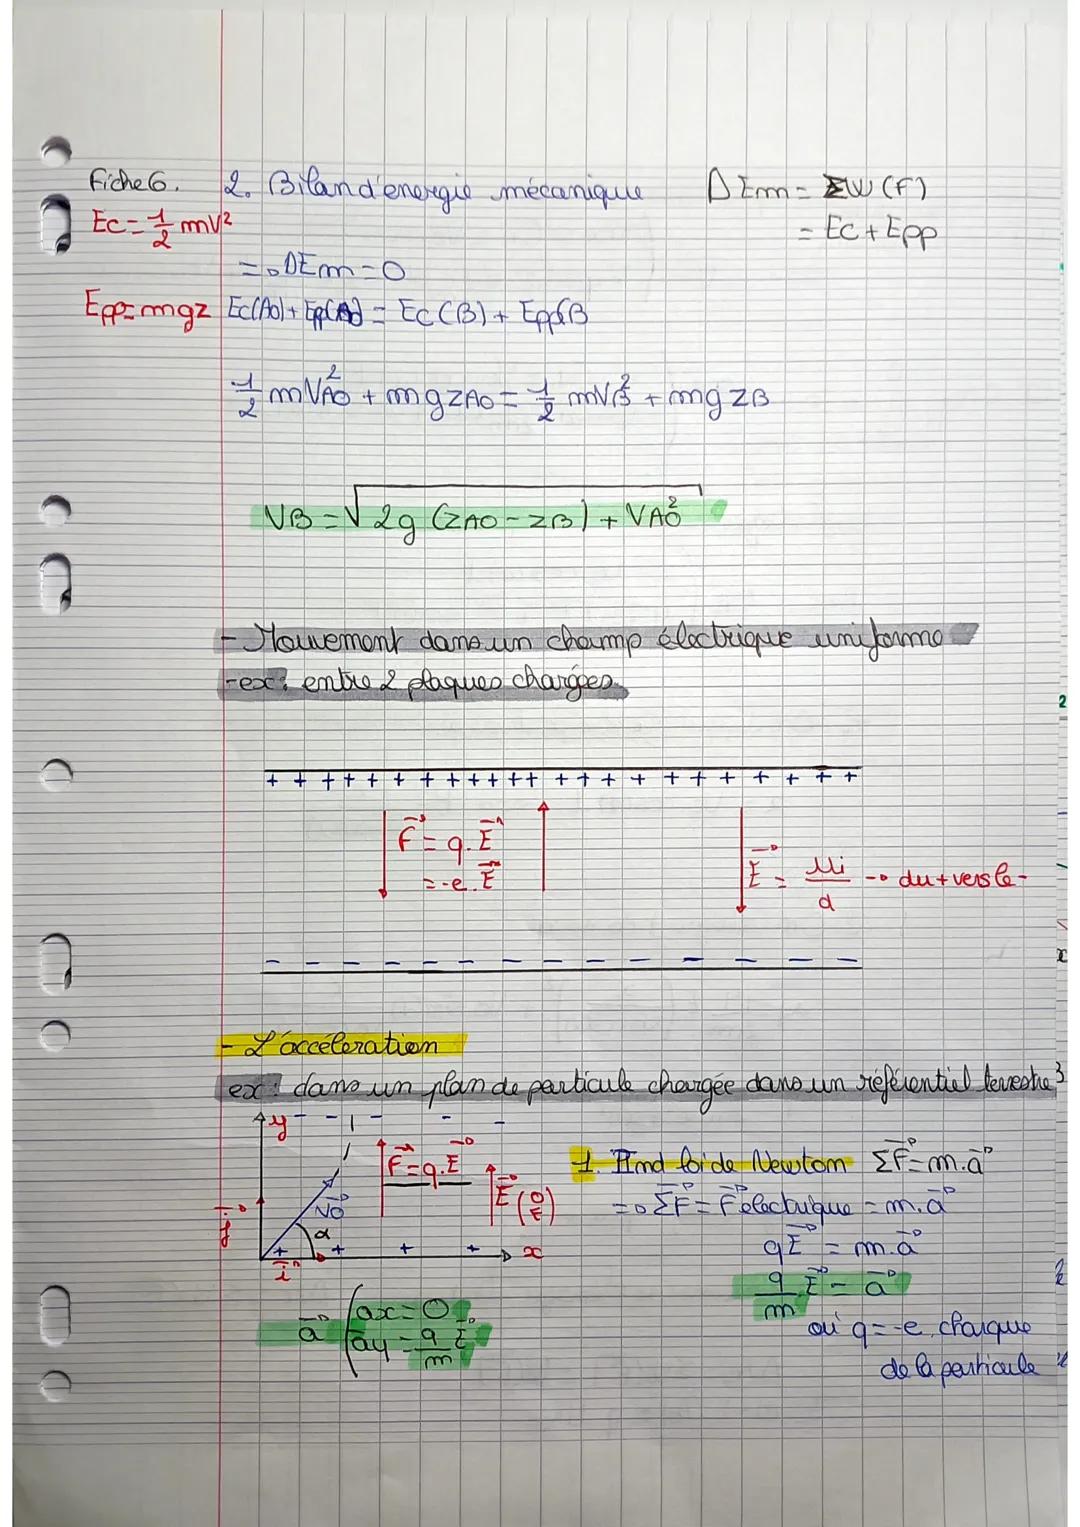 Fiche 6. 2. Bilan d'énergie mécanique ΔEm = ΣW (F)
Ec = 1/2 mV² = Ec + Epp
=> ΔEm = 0
Epp = mgz Ec(A0) + Epp(A0) = Ec(B) + Epp(B
1/2 mVA0² + mgzA0 = 1/2 mVB² + mgzB
VB = √2g (zA0 - zB) + VA0²
- Mouvement dans un champ électrique uniforme
- ex: entre 2 plaques chargées.
+ + + + + + + + + + + + + + + + + + + + + + + +
F⃗ = q. E⃗
= -e. E⃗
E⃗ = Ui/d → du + vers le -
- - - - - - - - - - - - - -
- L'accéleration
ex: dans un plan de particule chargée dans un référentiel terrestre
y - - - - -
F⃗ = q.E⃗
E⃗ (0 E)
V0⃗
α
j⃗
i⃗
+ + + + x
1. IInd loi de Newton ΣF⃗ = m.a⃗
=> ΣF⃗ = F⃗ électrique = m.a⃗
qE⃗ = m.a⃗
q/m E⃗ = a⃗
où q = -e, charque
de la particule
a⃗ (ax = 0
ay = q/m E